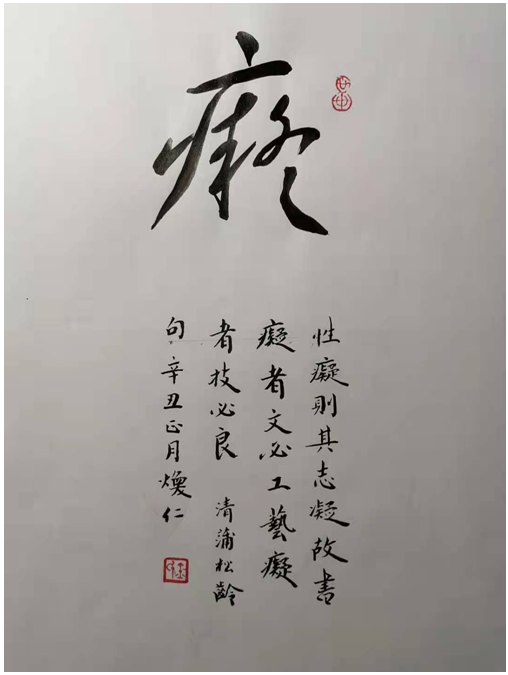 癡
性癡則其志凝故書
癡者文必工藝癡
者技必良 清蒲松齡
句 辛丑正月煥仁